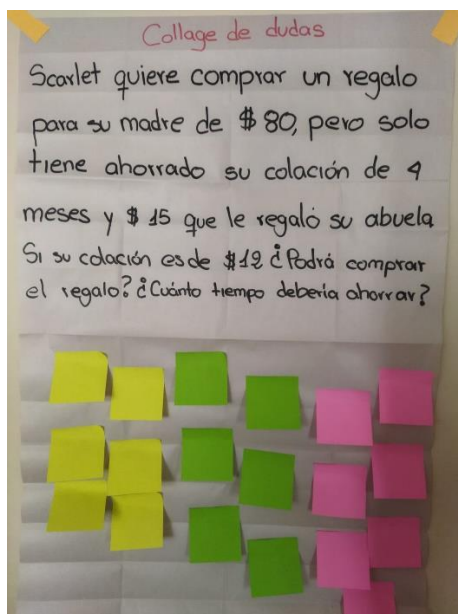 Collage de dudas
Scarlet quiere comprar un regalo
para su madre de $ 80, pero solo
tiene ahorrado su colación de 4
meses y $ 15 que le regaló su abuela
Si su colación es de $12 ¿Podrá comprar
el regalo? ¿Cuánto tiempo debería ahorrar?